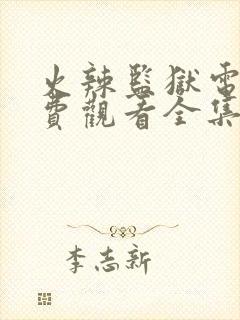 火辣監獄電
費觀看全集
李志新